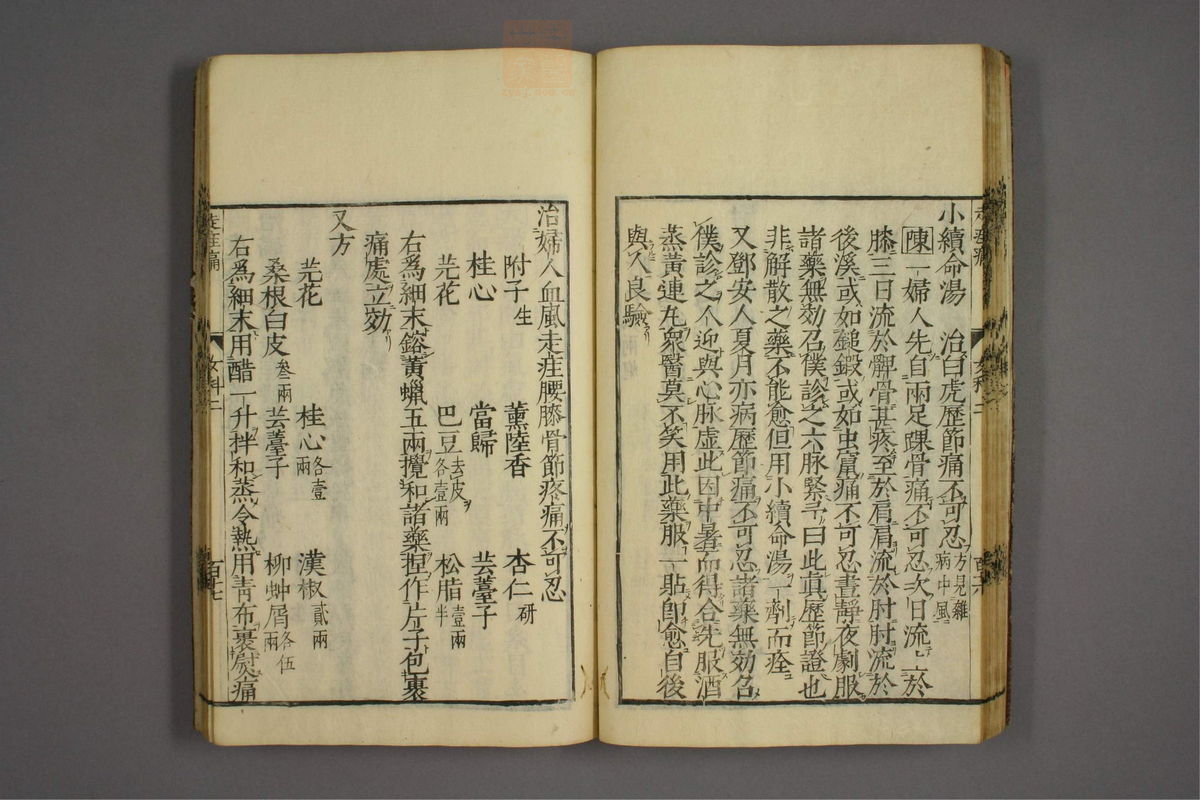 小續命湯　治白虎歷節痛不可忍方見雜病中風
陳一婦人先自兩足踝骨痛不可忍次日流上於
膝三日流於髀骨甚疼至於肩肩流於肘肘流於
後溪或如鎚鍛或如虫齧痛不可忍晝靜夜劇服
諸藥無効召僕診之六脉緊予曰此真歷節證也
非解散之藥不能愈但用小續命湯一劑而痊
又鄧安人夏月亦病歷節痛不可忍諸藥無効召
僕診之人迎與心脉虛此因中暑而得合先服酒
蒸黃連丸衆醫莫不笑用此藥服一貼即愈自後
與人良驗
治婦人血風走疰腰膝骨節疼痛不可忍
附子生　薫陸香　杏仁研
桂心　當歸　芸薹子
芫花　巴豆去皮各壹兩　松脂壹兩半
右爲細末鎔黃蠟五兩攪和諸藥捏作片子包裹
痛處立効
又方
芫花　桂心各壹兩　漢椒貳兩
桑根白皮叁兩　芸薹子　柳蚛屑各伍兩
右爲細末用醋一升拌和蒸令熱用青布裹熨痛
走疰痛
女科二
百十七